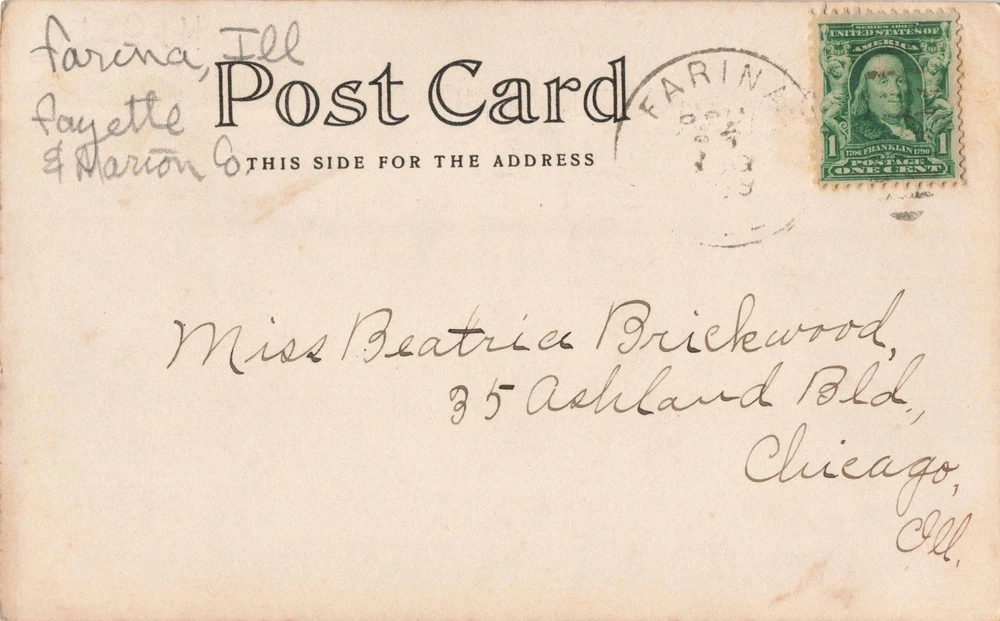 Farina, Ill
Fayette
& Marion Co.
Post Card
THIS SIDE FOR THE ADDRESS
FARINA
SERIES 1902
UNITED STATES OF
AMERICA
1 1
1706 FRANKLIN 1790
POSTAGE
ONE CENT
Miss Beatrice Brickwood,
35 Ashland Bld.,
Chicago,
Ill.